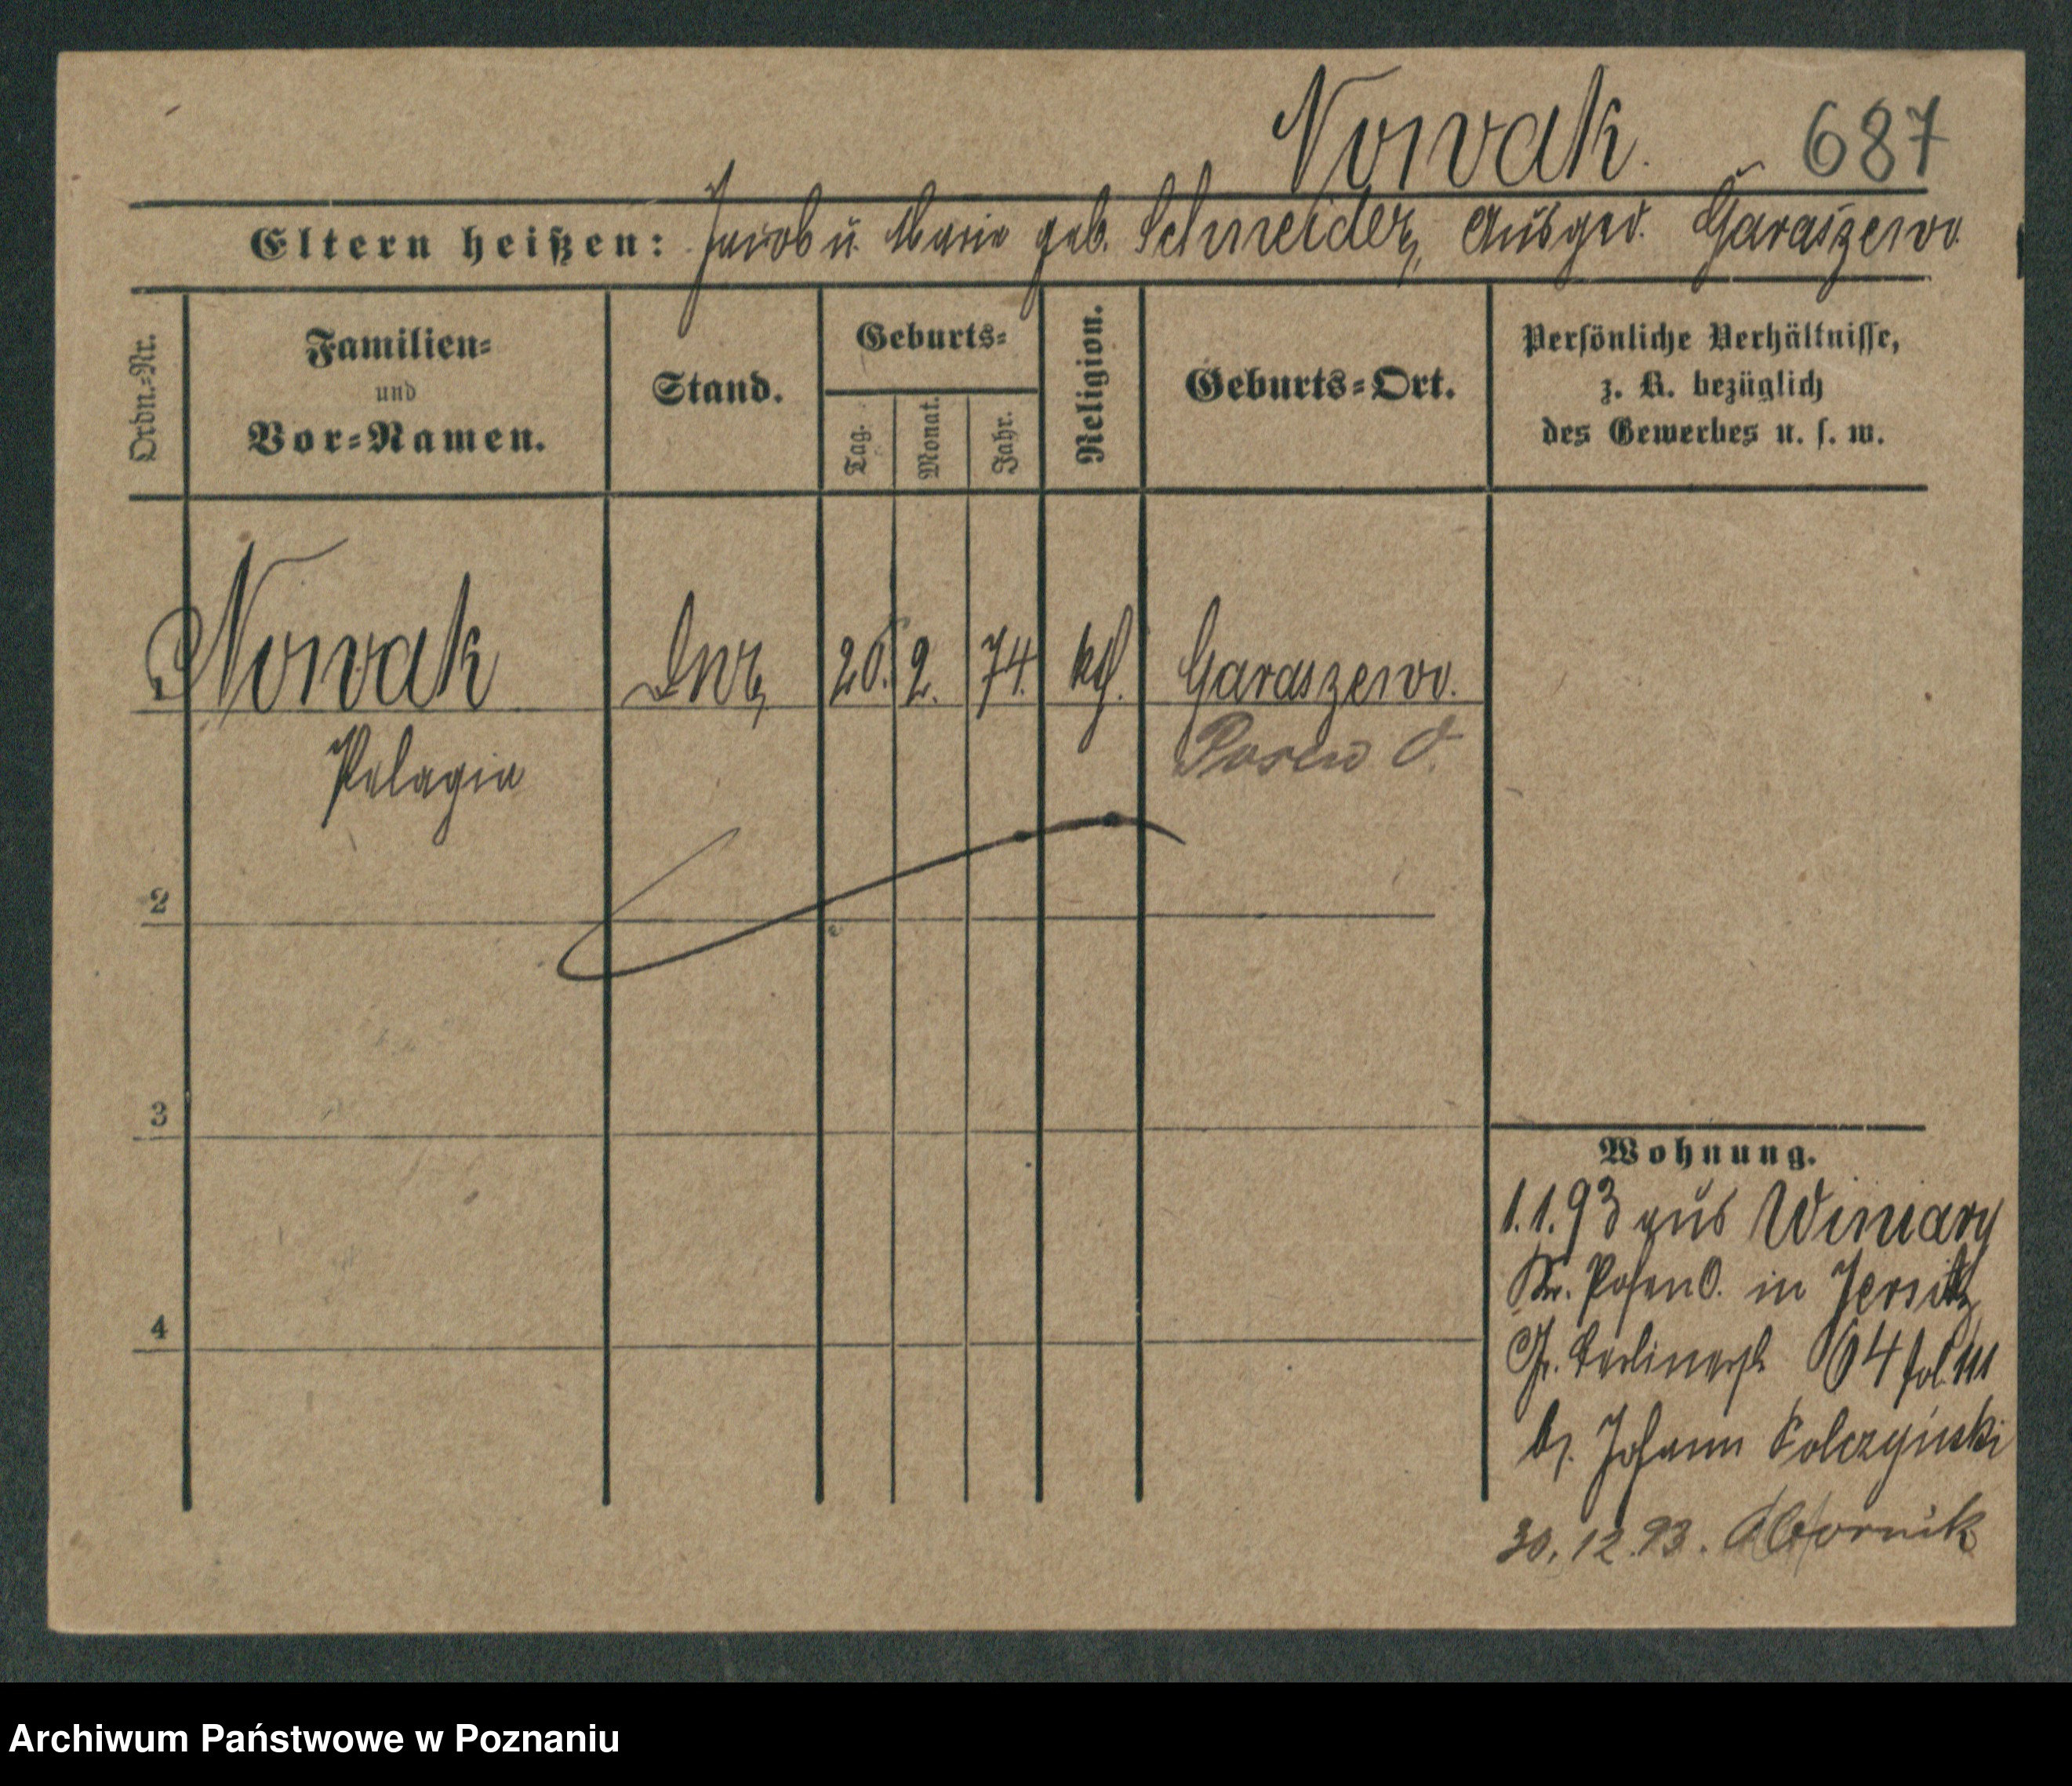 Nowak. 687
Eltern heißen: Jacob u. Marie geb. Schneider, Ausged. Garaszewo
Ordn.-Nr.
Familien-
und
Vor-Namen.
Stand.
Geburts-
Tag.
Monat.
Jahr.
Religion.
Geburts-Ort.
Persönliche Verhältnisse,
z. B. bezüglich
des Gewerbes u. s. w.
1 Nowak 20. 2. 74. kth. Garaszewo.
Pelagia Posen O.
2
3
4
Wohnung.
1.1.93 aus Winiary
Kr. Posen O. in Jersitz
Gr. Berlinerst. 64 fol. 111
b. Johann Polczyński
30.12.93. Obornik
Archiwum Państwowe w Poznaniu